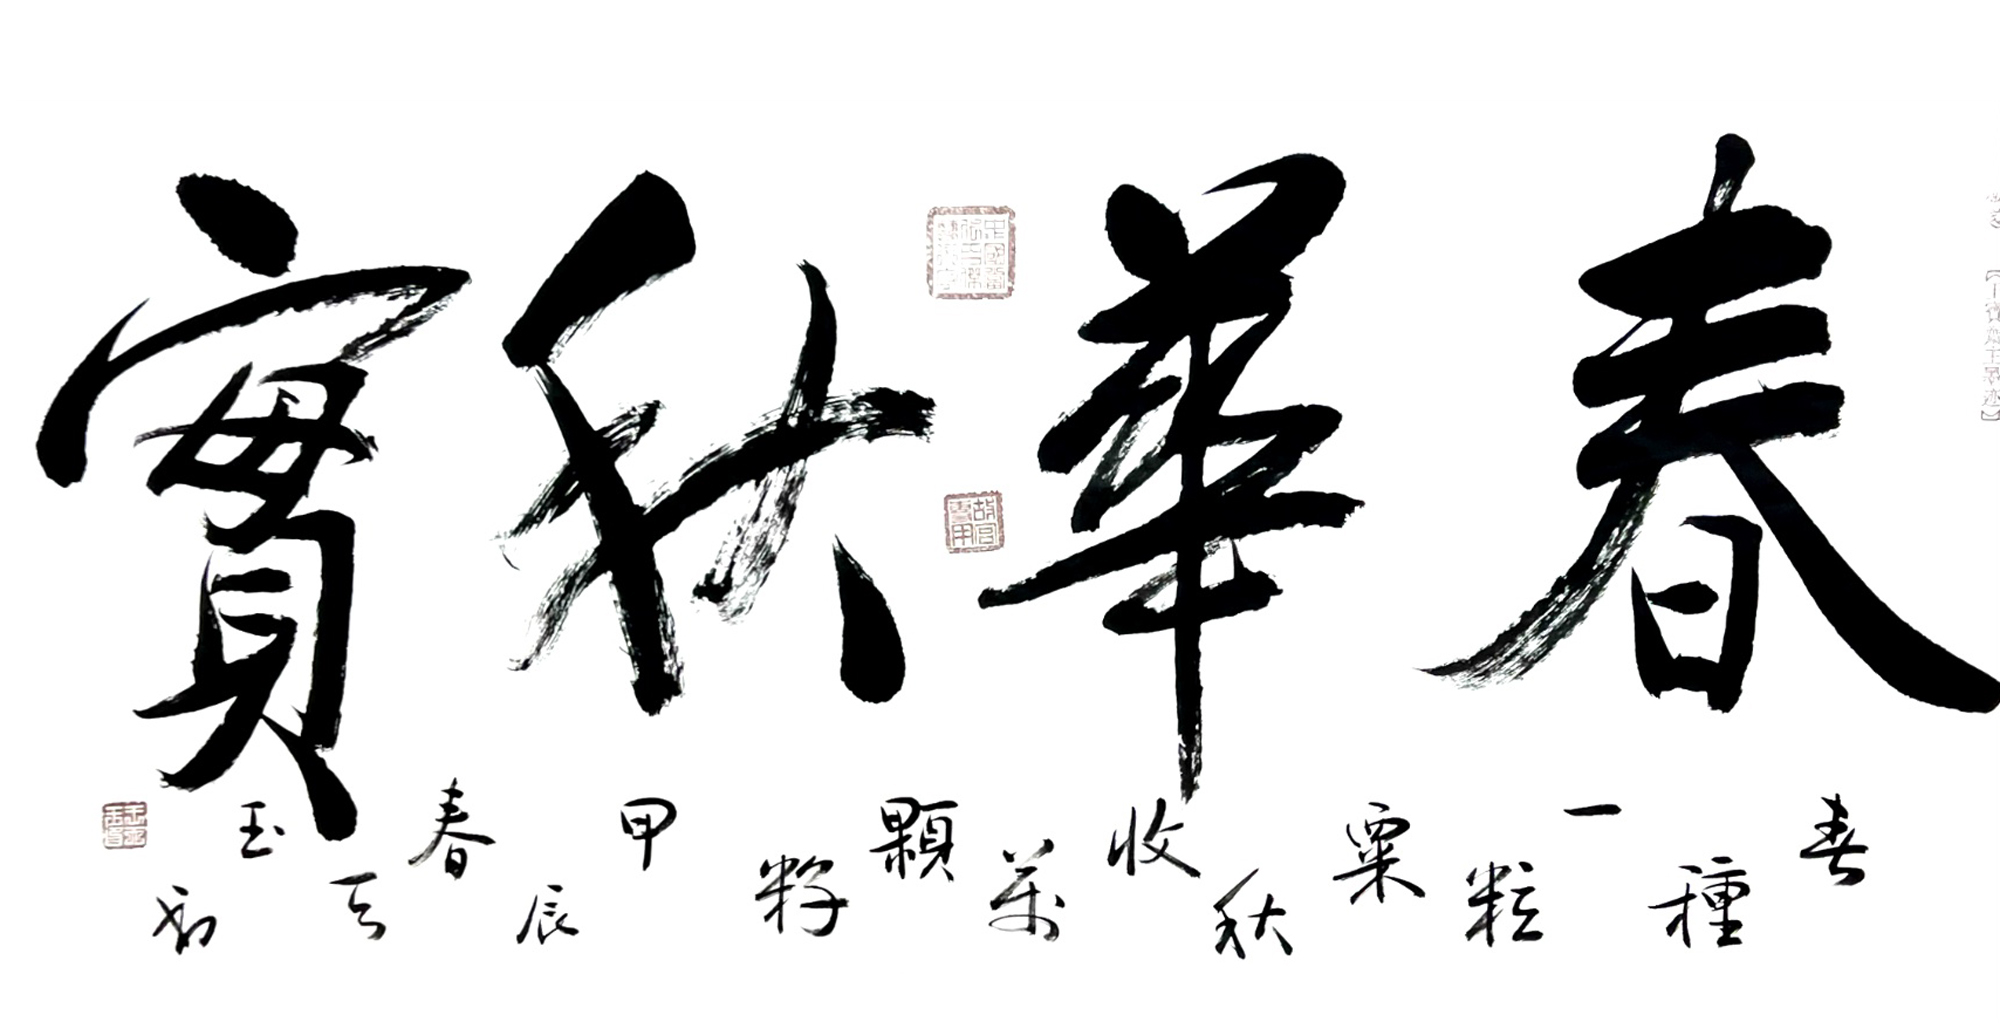 春華秋實
春種一粒粟秋收萬顆籽甲辰春天玉